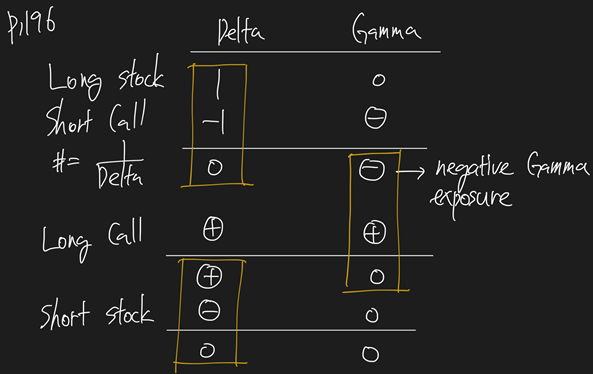 p.196
Delta Gamma
Long stock 1 0
Short Call -1 ⊖
#= 1/Delta 0 ⊖ → negative Gamma exposure
Long Call ⊕ ⊕
⊕ 0
Short stock ⊖ 0
0 0